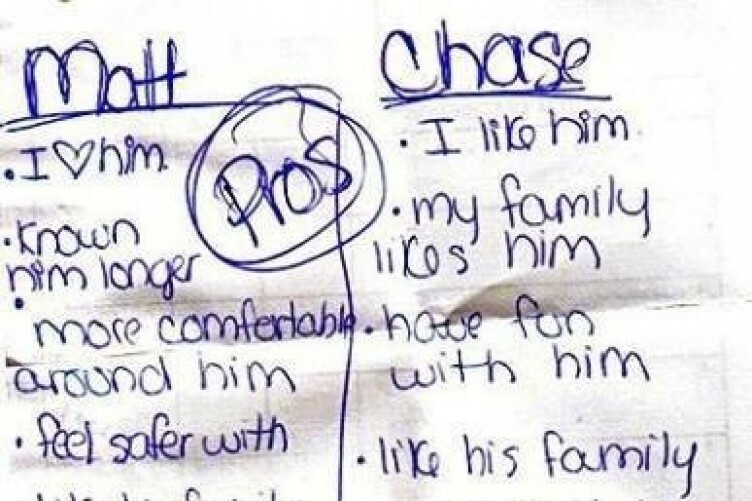 Matt
• I ♡ him
• Known
him longer
• more comfertable
around him
• feel safer with
Pros
Chase
• I like him
• my family
likes him
• have fun
with him
• like his family